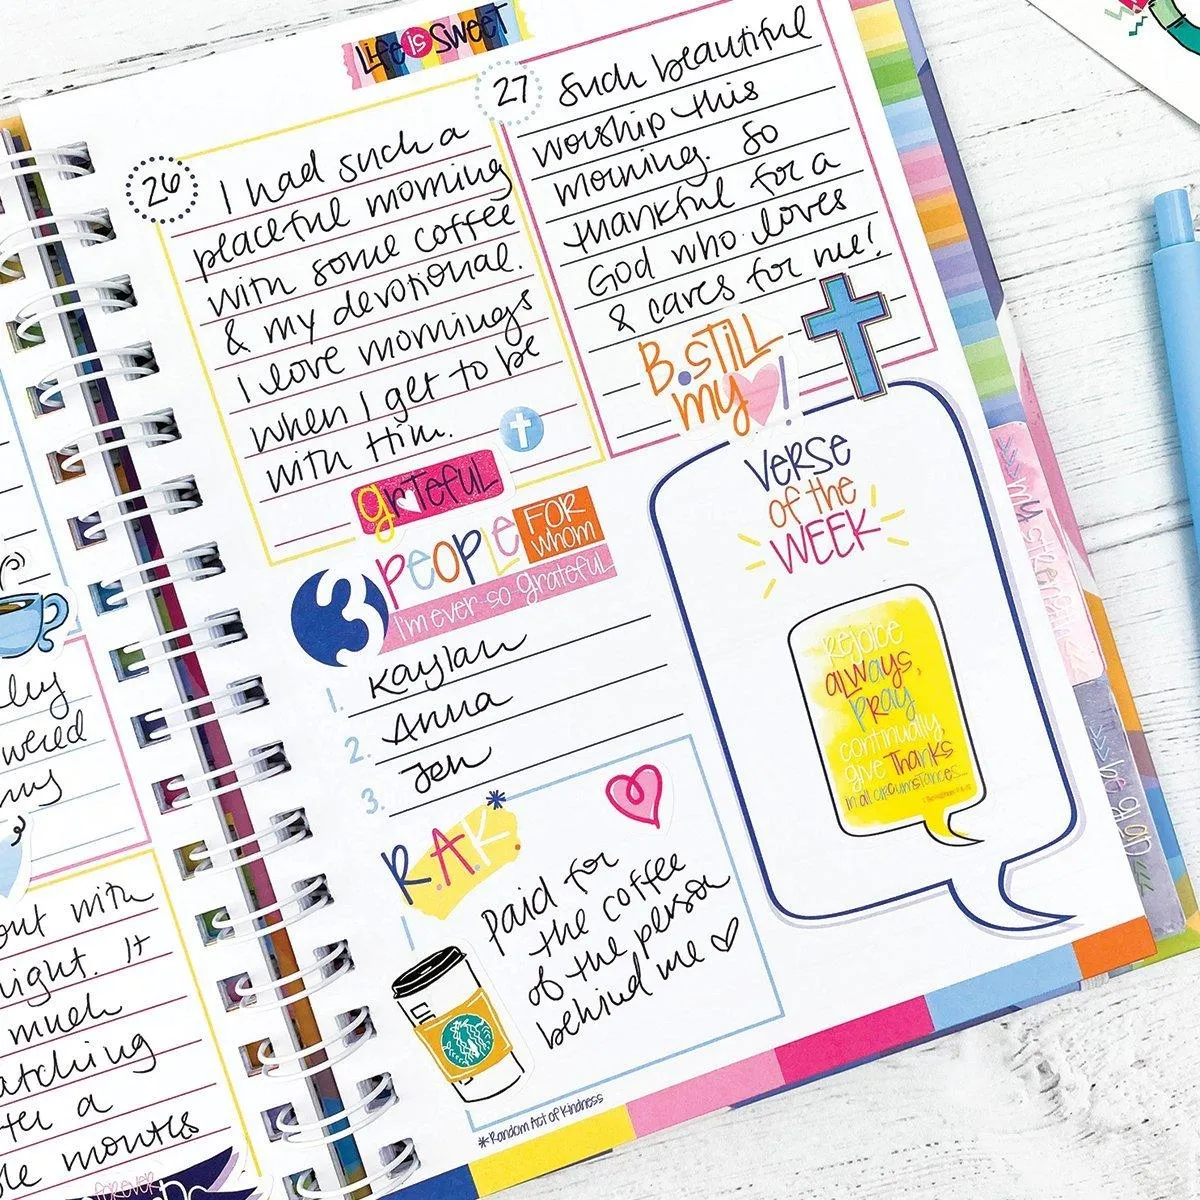 Life is Sweet
26
I had such a
peaceful morning
with some coffee
& my devotional.
I love mornings
when I get to be
with Him.
grateful
27
Such beautiful
worship this
morning. So
thankful for a
God who loves
& cares for me!
B.STill
my
VERSE
of the
WEEK
Rejoice
always,
pray
continually
give Thanks
in all circumstances...
3 PEOPLE FOR
whom
I'm ever so grateful
1. Kaylan
2. Anna
3. Jen
R.A.K.*
Paid for
the coffee
of the person
behind me
*Random Act of Kindness
my strength
out with
night. It
much
atching
a
months
FOREVER